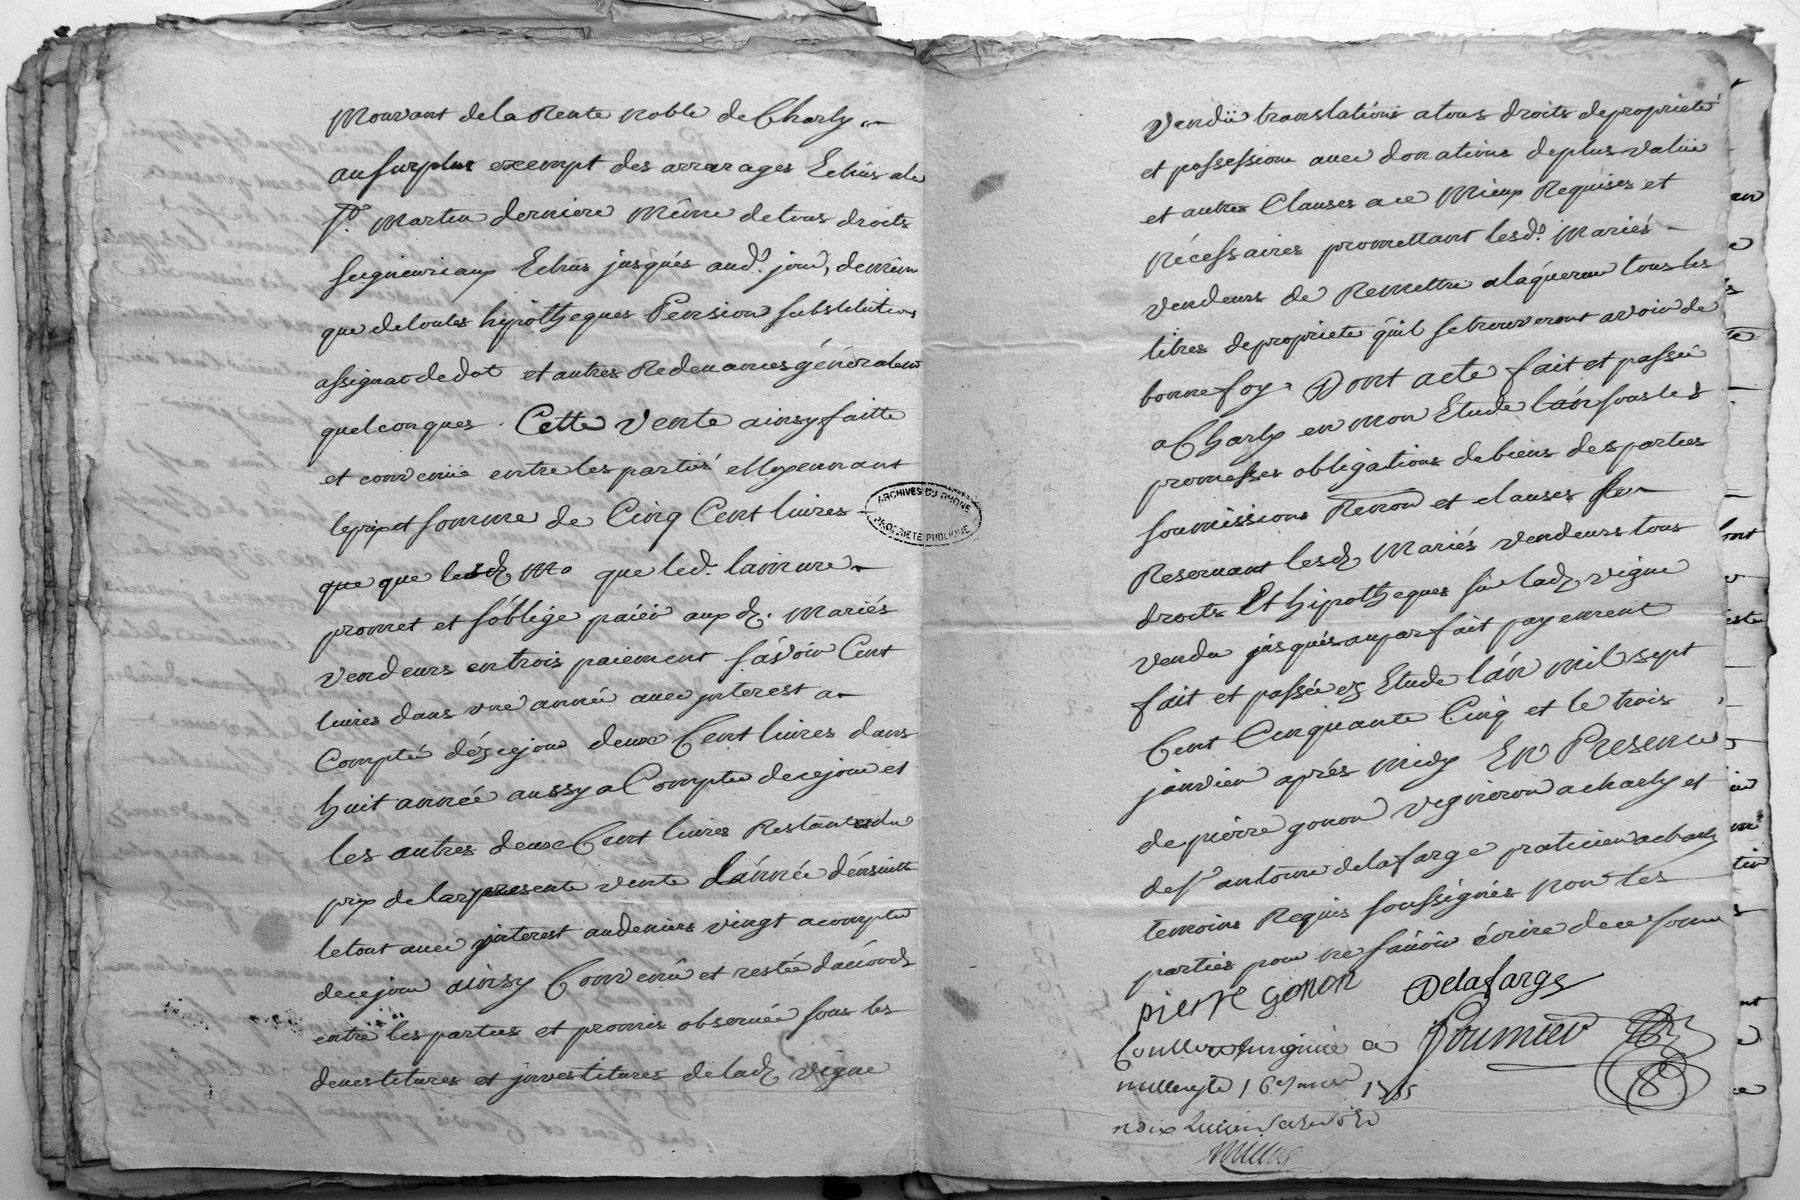 Mouvant de la Rente noble de Charly
au surplus exempt des arrarages Echûs a la
St. Martin derniere Même de tous droits
seigneuriaux Echûs jusqués aud. jour, de même
que de toutes hipotheques Pension substitutions
assignat de dot et autres Redevances généralem
quelconques. Cette vente ainsy faitte
et convenüe entre les partiés Moyennant
le prix et somme de Cinq Cent livres
que que lesd que led.
promet et s'óblige paiéér aux d. Mariés
vendeurs en trois paiement sávoir Cent
livres dans une année avec jnterest a
Compter dézcejour deux Cent livres dans
huit année aussy a Compter de ce jour et
les autres deux Cent livres Restantes du
prix de la presente vente l'ánnée d'énsuitte
le tout avec jnterest au deniers vingt a compter
de ce jour ainsy Convenû et restée d'acórd
entre les parties et promis observée sous les
devestitures et jnvestitures de lad vigne
ARCHIVES DU RHONE
PROPRIÉTÉ PUBLIQUE
Vendüe translations a tous droits de proprieté
et possession avec donations de plus valüe
et autres Clauses a ce Mieux Requises et
Nécessaires promettant lesd. Mariés
vendeurs de Remettre a l'aquereur tous les
titres de proprieté qu'il se trouveront avoir de
bonne foy. Dont acte fait et passé
a Charly en mon Etude sous les
promesses obligations de biens des parties
soumissions Renon et clauses
Reservant lesd Mariés vendeurs tous
droits Et hipotheques sur lad vigne
vendu jusqués au parfait payement
fait et passée ez Etude l'án mil sept
Cent Cinquante Cinq et le trois
janvier aprés midy En Presence
de pierre gonon vigneron a charly et
de Sr antoine delafarge praticien a charly
temoins Requis soussignés non les
parties pour ne sávoir écrire de ce somme
pierre gonon Delafarge
a Fournier
1755